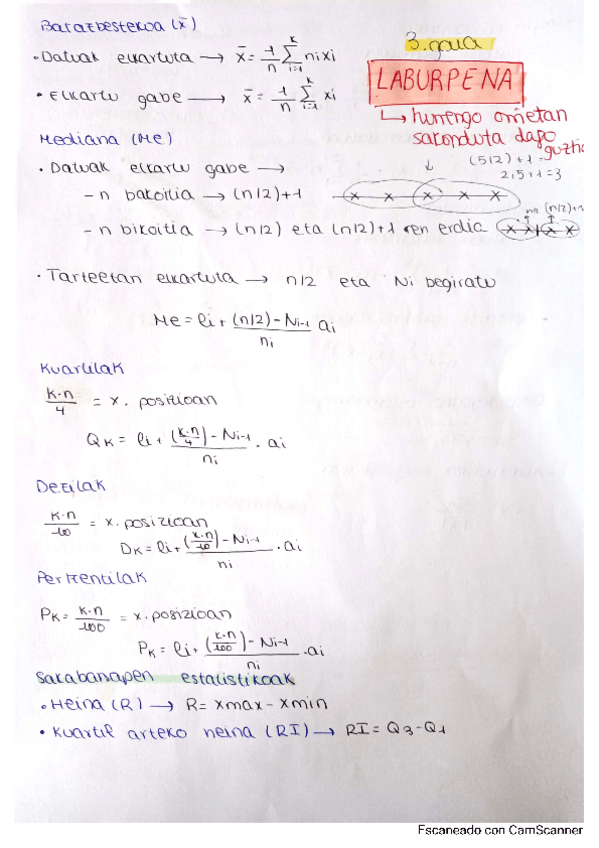 Batazbestekoa (x̄)
3. gaia
LABURPENA
↳ hurrengo orrietan
sakonduta dago
guztia
• Datuak elkartuta → x̄ = 1/n Σ(i=1, k) ni xi
• Elkartu gabe → x̄ = 1/n Σ(i=1, k) xi
Mediana (Me)
(5/2)+1
2,5+1=3
• Datuak elkartu gabe →
- n bakoitia → (n/2)+1
- n bikoitia → (n/2) eta (n/2)+1 en erdia
n/2 (n/2)+1
• Tarteetan elkartuta → n/2 eta Ni begiratu
Me = li + ((n/2) - Ni-1)/ni ai
Kuartilak
k·n/4 = x. posizioan
QK = li + ((k·n/4) - Ni-1)/ni · ai
Dezilak
k·n/10 = x. posizioan
DK = li + ((k·n/10) - Ni-1)/ni · ai
Pertzentilak
PK = k·n/100 = x. posizioan
PK = li + ((k·n/100) - Ni-1)/ni · ai
Sakabanapen estatistikoak
• Heina (R) → R = xmax - xmin
• Kuartil arteko heina (RI) → RI = Q3 - Q1
Escaneado con CamScanner